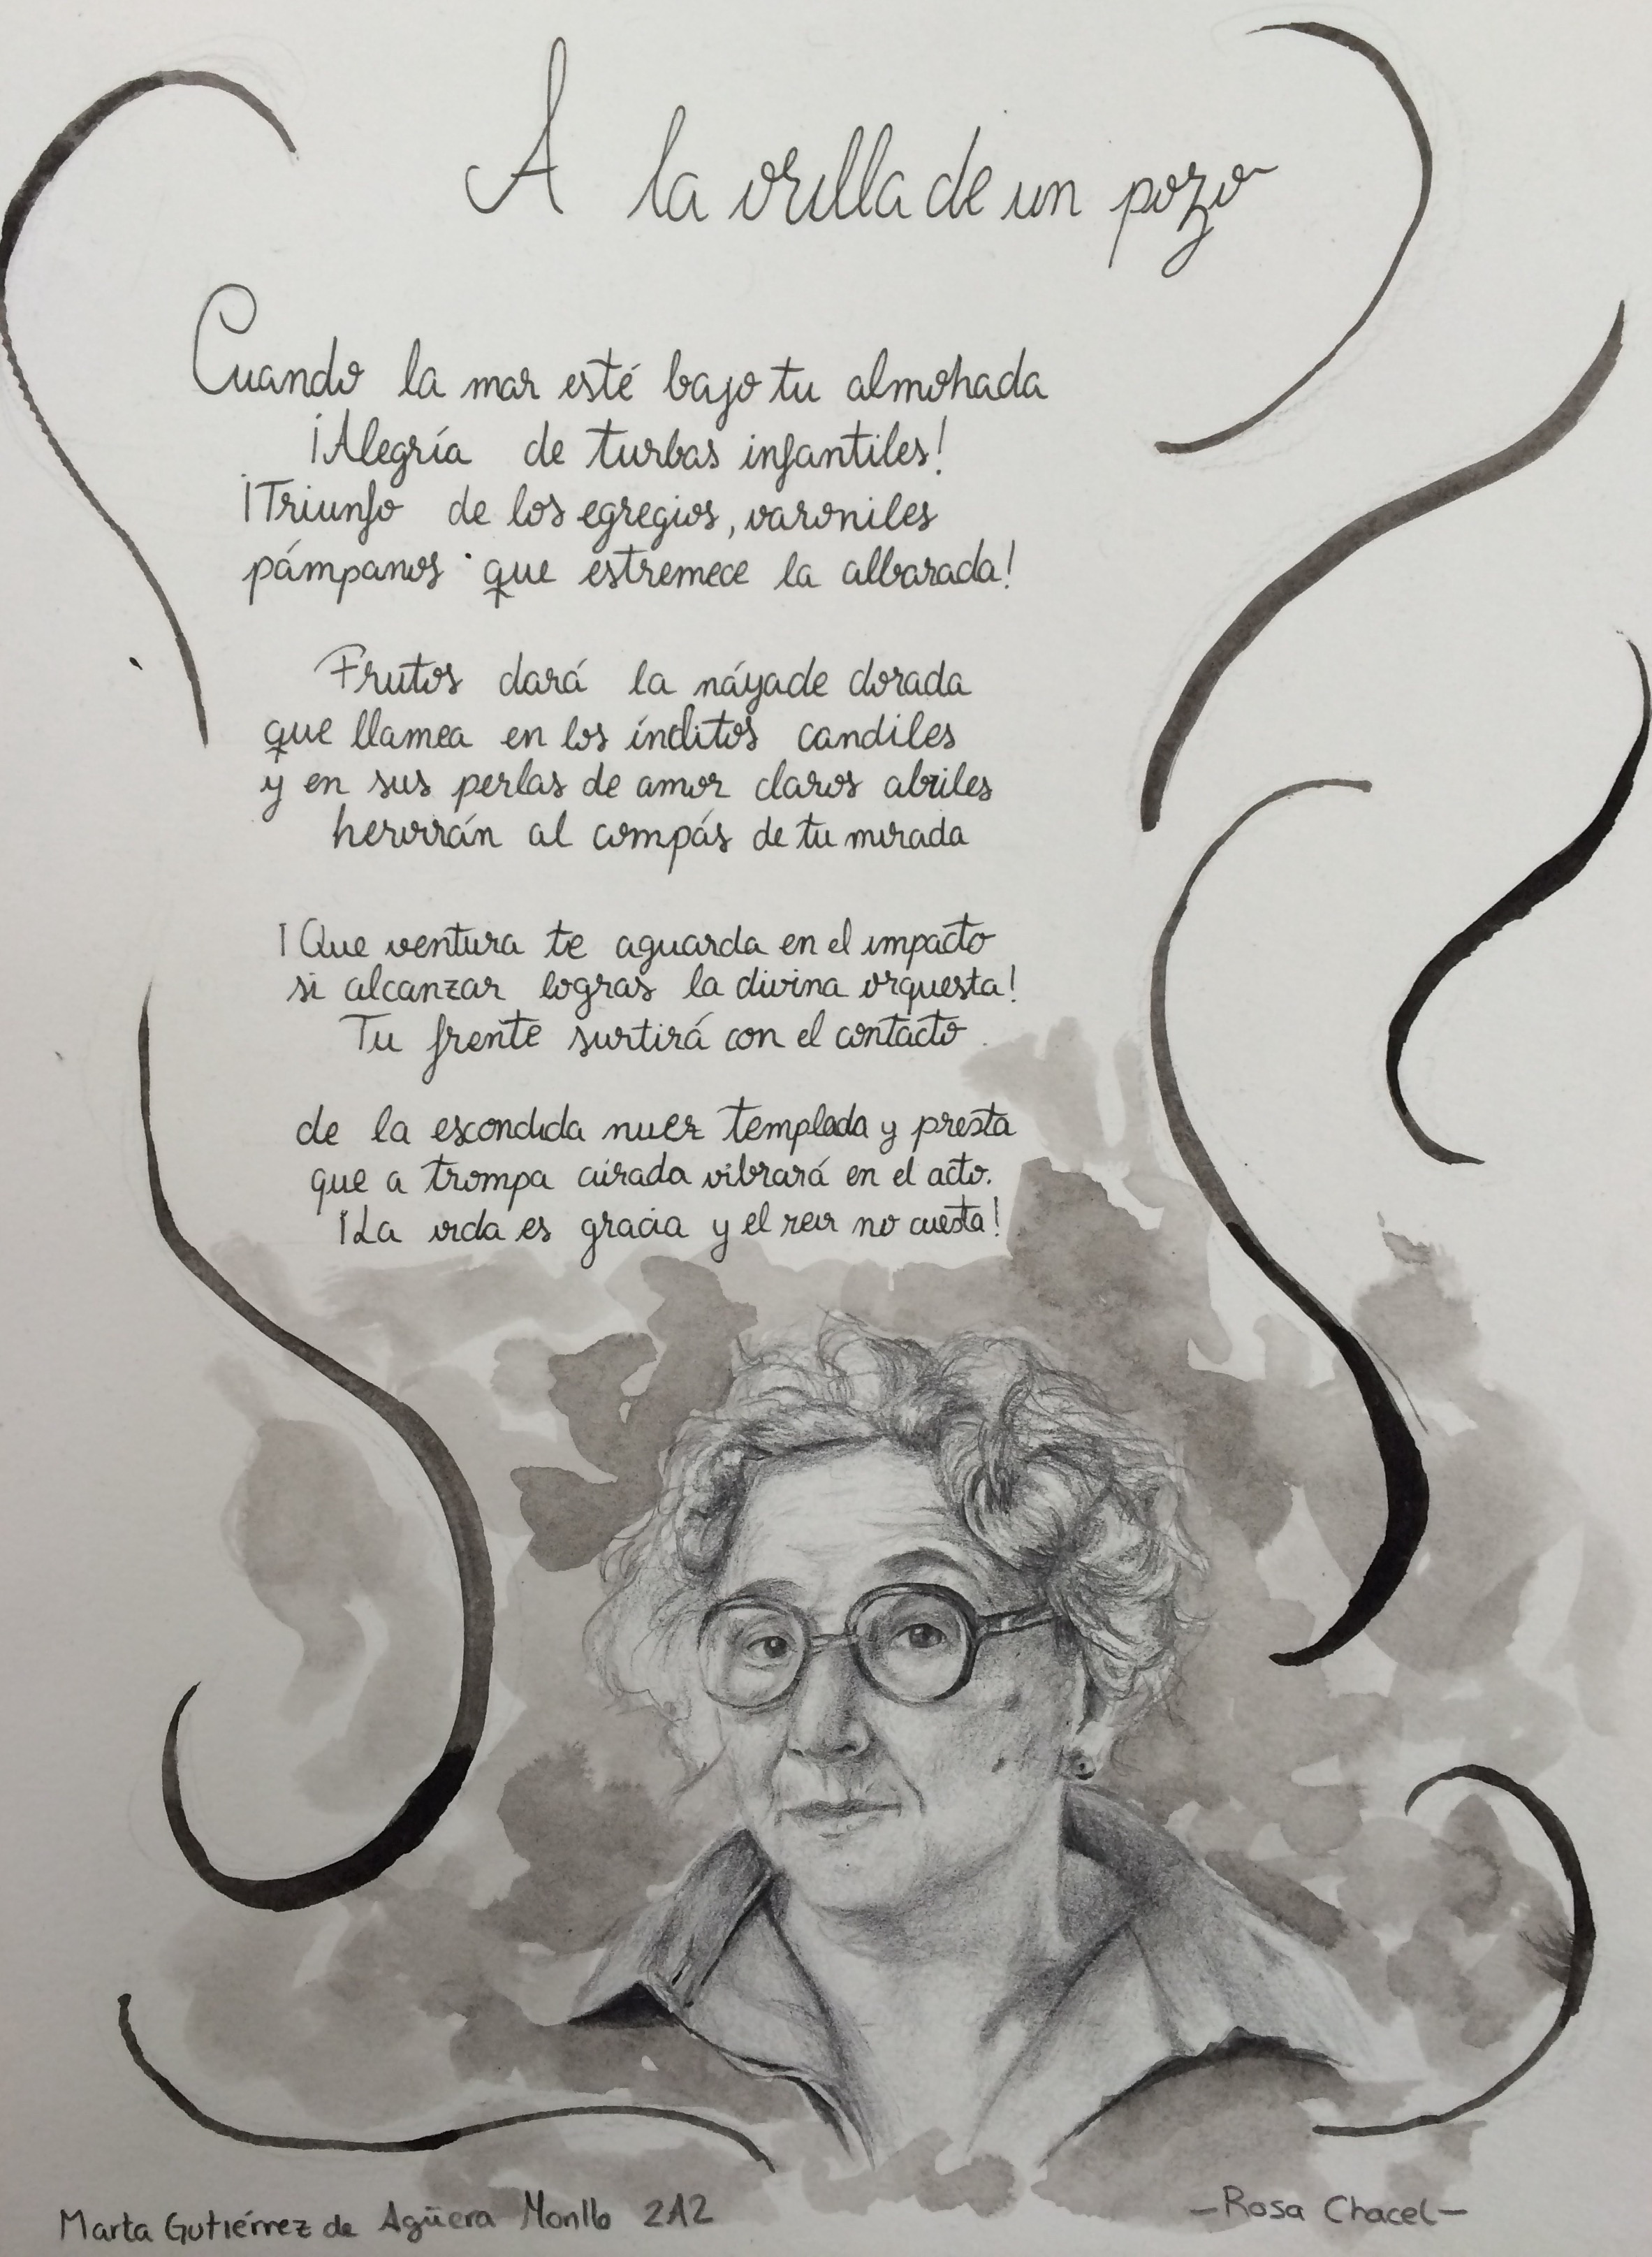 A la orilla de un pozo
Cuando la mar esté bajo tu almohada
¡Alegría de turbas infantiles!
¡Triunfo de los egregios, varoniles
pámpanos que estremece la albarada!
Frutos dará la náyade dorada
que llamea en los ínclitos candiles
y en sus perlas de amor claros abriles
hervirán al compás de tu mirada
¡Que ventura te aguarda en el impacto
si alcanzar logras la divina orquesta!
Tu frente surtirá con el contacto
de la escondida nuez templada y presta
que a trompa airada vibrará en el acto.
¡La vida es gracia y el reir no cuesta!
Marta Gutiérrez de Agüera Monllo 2A2
-Rosa Chacel-